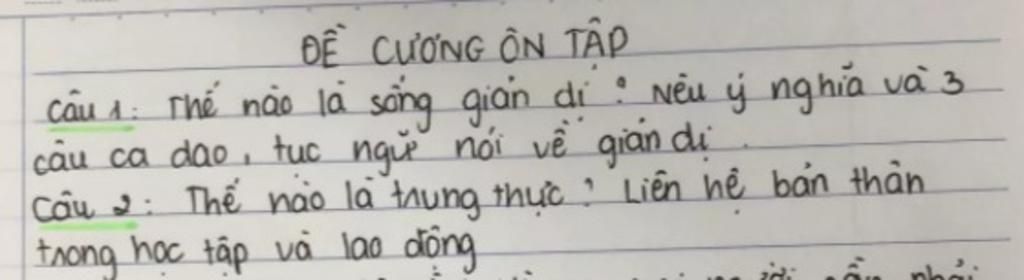 ĐỀ CƯƠNG ÔN TẬP
Câu 1: Thế nào là sống giản dị? Nêu ý nghĩa và 3
câu ca dao, tục ngữ nói về giản dị.
Câu 2: Thế nào là trung thực? Liên hệ bản thân
trong học tập và lao động